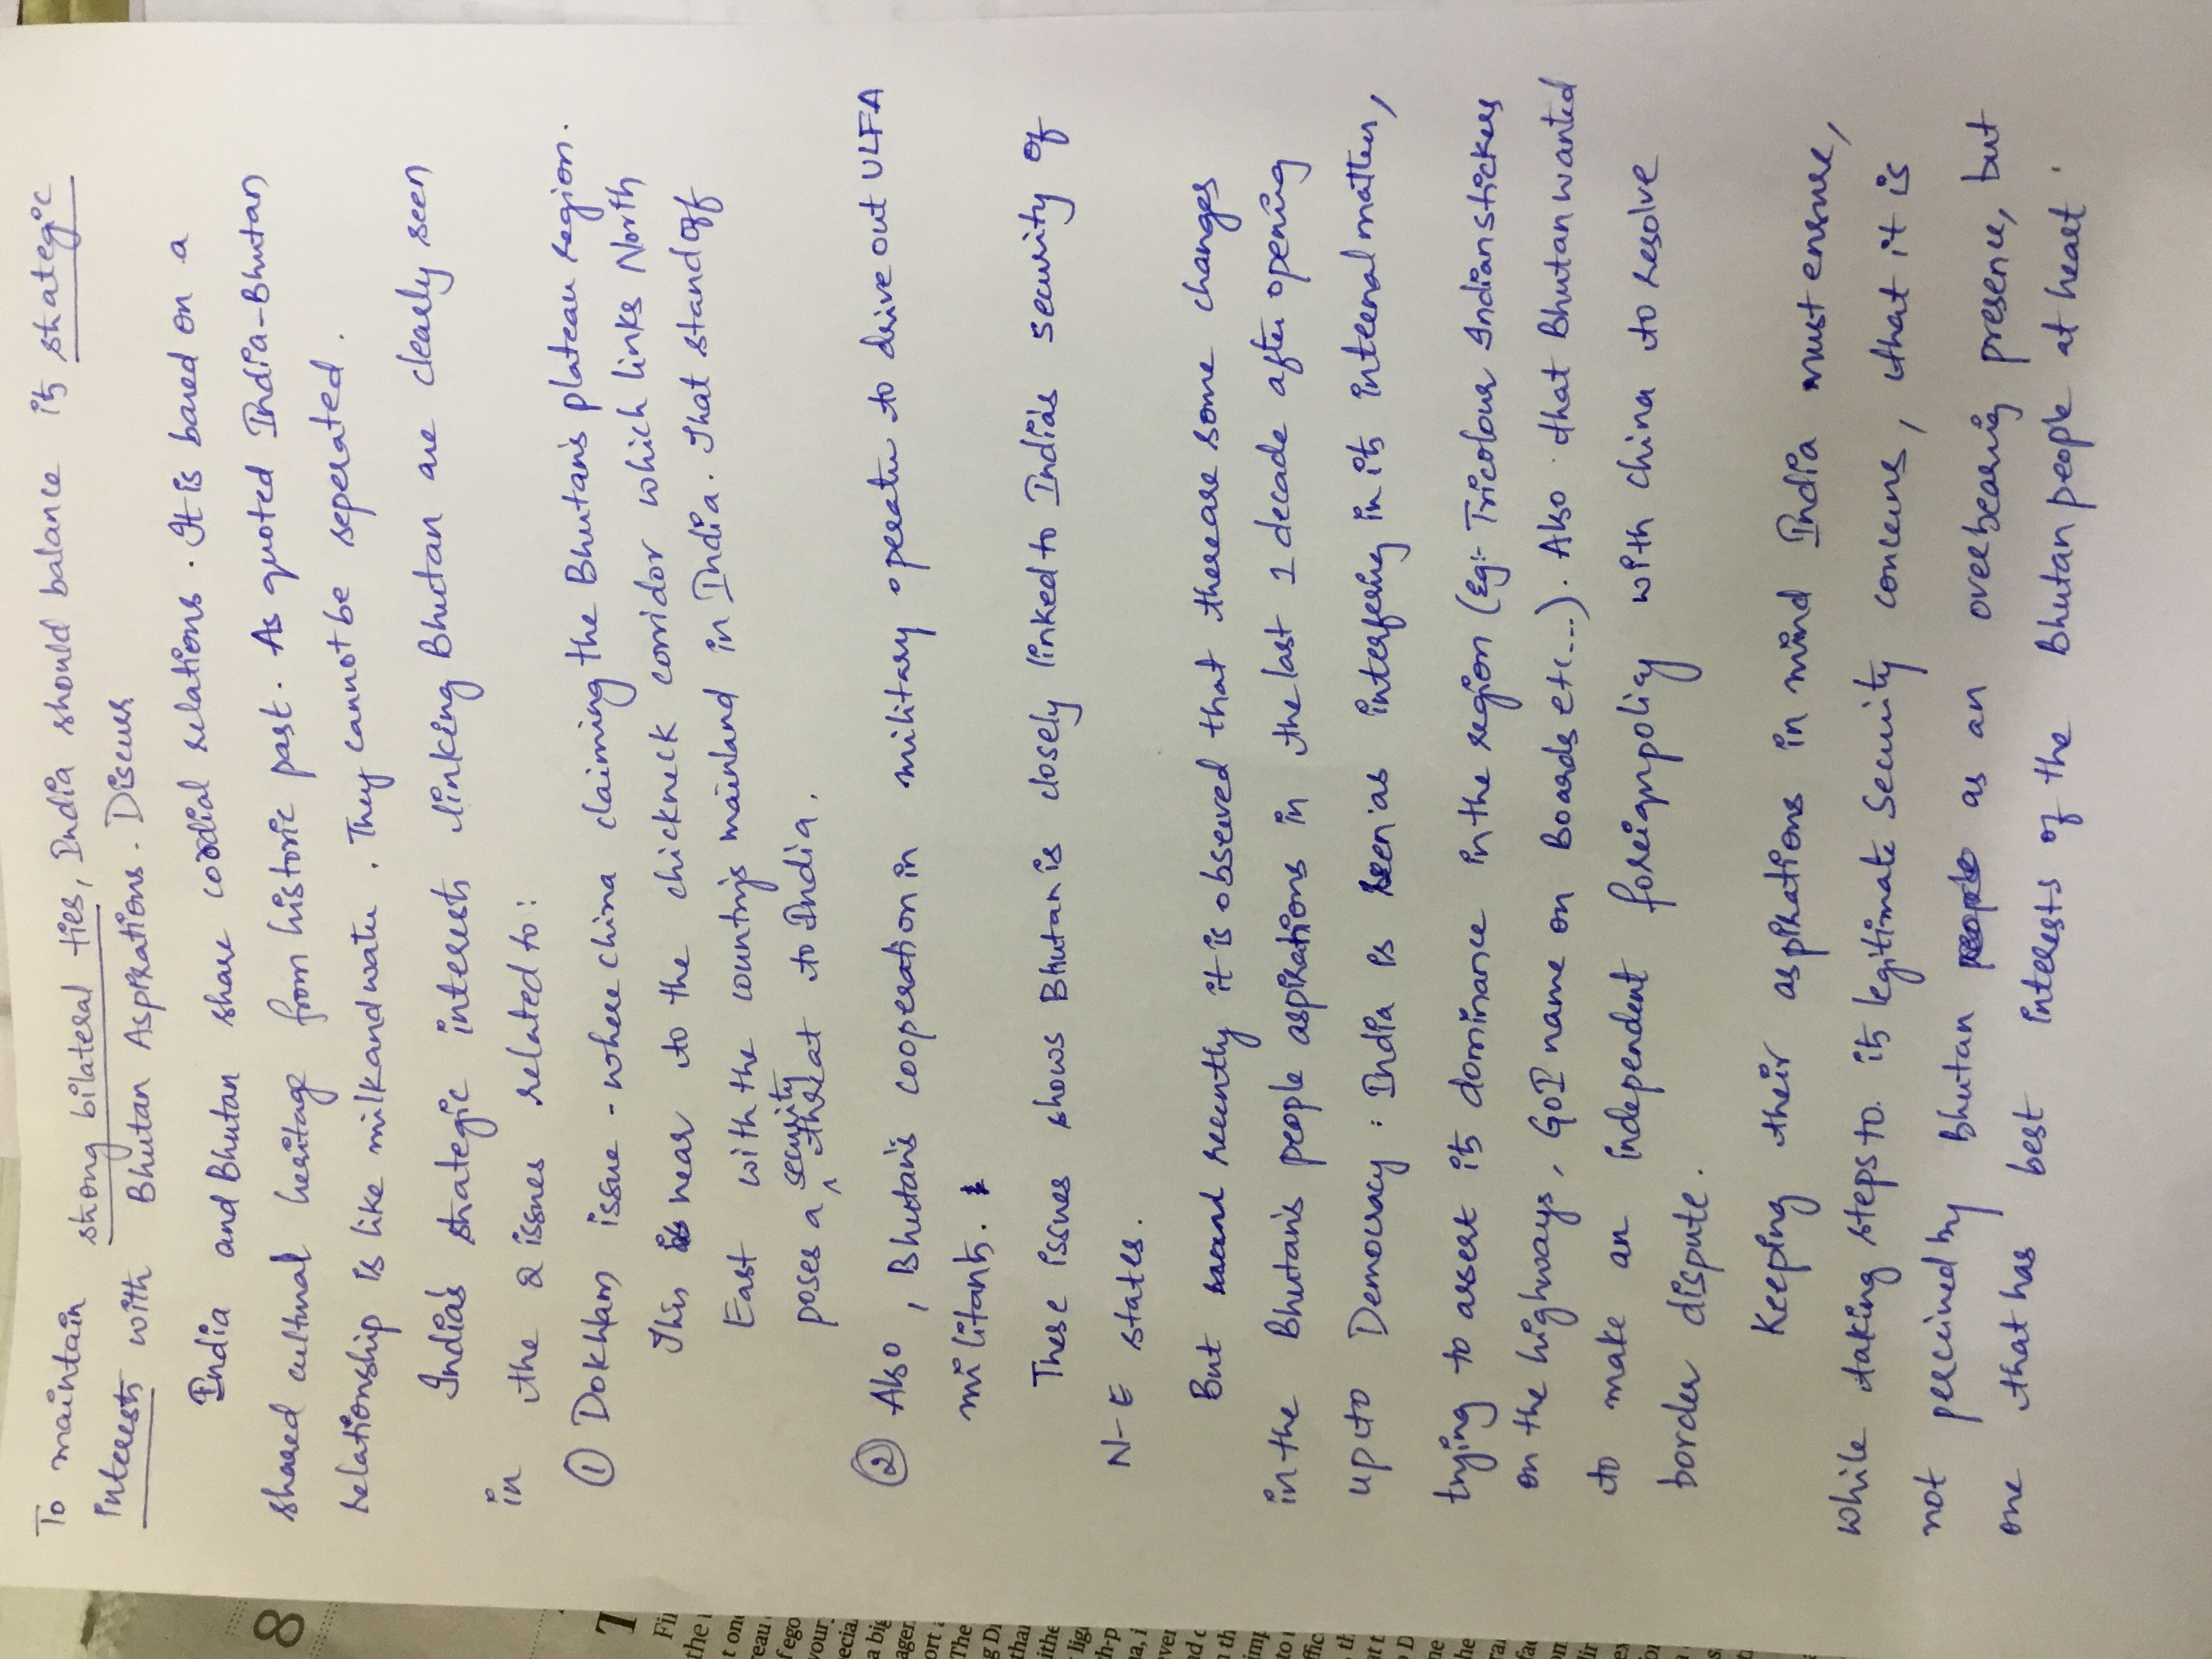 To maintain strong bilateral ties, India should balance its strategic
interests with Bhutan Aspirations. Discuss
India and Bhutan share cordial relations. It is based on a
shared cultural heritage from historic past. As quoted India-Bhutan
relationship is like milk and water. They cannot be seperated.
India's strategic interests linking Bhutan are clearly seen
in the 2 issues related to:
① Dokhlam issue - where china claiming the Bhutan's plateau region.
This is near to the chickneck corridor which links North
East with the country's mainland in India. That standoff
poses a security threat to India.
② Also, Bhutan's cooperation in military operatn to drive out ULFA
militants.
These issues shows Bhutan is closely linked to India's security of
N-E states.
But recently it is observed that there are some changes
in the Bhutan's people aspirations in the last 1 decade after opening
upto Democracy: India is seen as interfering in its internal matters,
trying to assert its dominance in the region (Eg:- Tricolour Indian stickers
on the highways, GoI name on Boards etc...). Also that Bhutan wanted
to make an independent foreign policy with china to resolve
border dispute.
Keeping their aspirations in mind India must ensure,
while taking steps to its legitimate security concerns, that it is
not perceived by bhutan people as an overbearing presence, but
one that has best interests of the Bhutan people at heart.
8
T
Fi